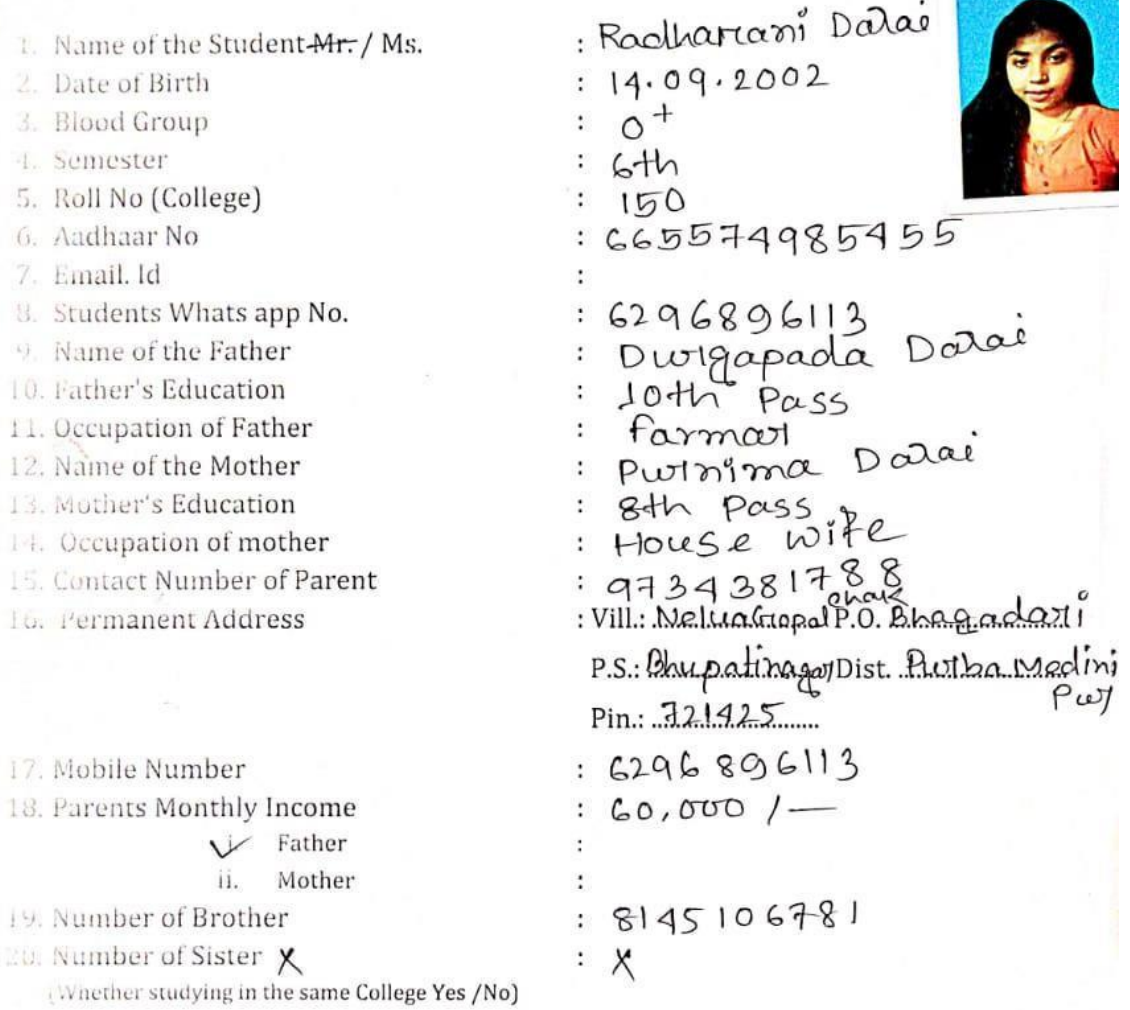 1. Name of the Student Mr. / Ms. : Radharani Dalai
2. Date of Birth : 14.09.2002
3. Blood Group : O+
4. Semester : 6th
5. Roll No (College) : 150
6. Aadhaar No : 665574985455
7. Email. Id :
8. Students Whats app No. : 6296896113
9. Name of the Father : Durgapada Dalai
10. Father's Education : 10th Pass
11. Occupation of Father : farmar
12. Name of the Mother : Purnima Dalai
13. Mother's Education : 8th Pass
14. Occupation of mother : House wife
15. Contact Number of Parent : 9734381788
16. Permanent Address : Vill.: NeluaGopalchak P.O. Bhagadari
P.S.: Bhupatinagar Dist. Purba Medinipur
Pin.: 721425
17. Mobile Number : 6296896113
18. Parents Monthly Income : 60,000 /—
i. Father :
ii. Mother :
19. Number of Brother : 8145106781
20. Number of Sister X : X
(Whether studying in the same College Yes /No)